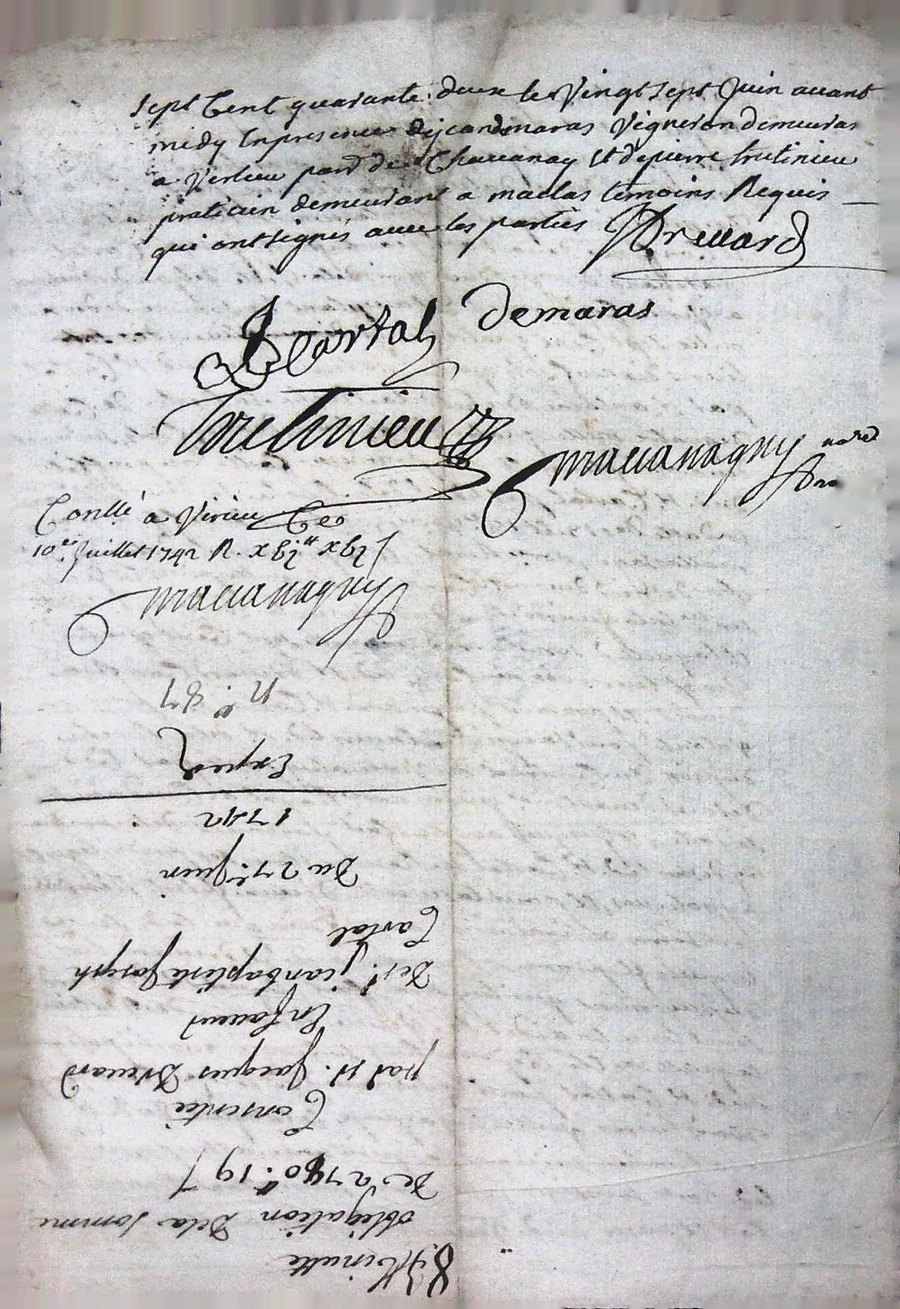 sept Cent quarante deux le Vingt sept Juin auant
midy En presence de jean demaras Vigneron demeurant
a Verlieu paroi de Chauanay Et de pierre trutinieu
praticien demeurant a maclas temoins Requis
qui ont signés auec les parties Dreuard
Cartal Demaras
trutinieu
mauanagny no.re
Conllé a Virieu Ce
10e Juillet 1742 R.
mauanagny
8. Minutte
obligation De la somme
de 2780# 19 s
Consentie
par sr. Jacques Dreuard
En faueur
De sr. jean baptiste Joseph
Cartal
Du 27e Juin
1742
Exped
n.o 87